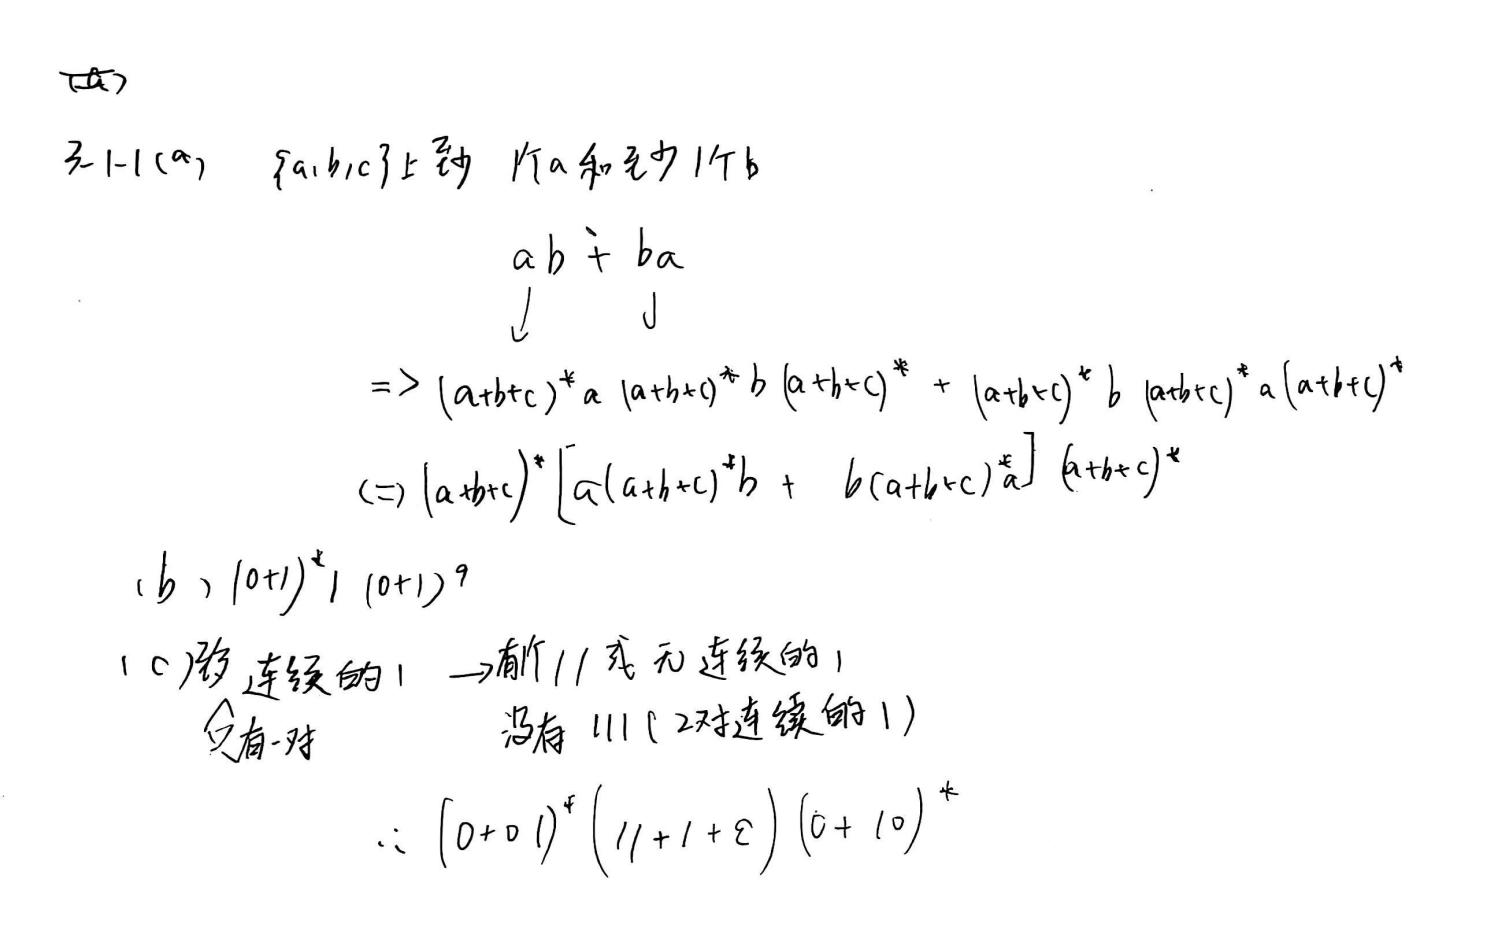 3-1-1(a) {a,b,c}上至少 1个a和至少1个b
ab + ba
=> (a+b+c)* a (a+b+c)* b (a+b+c)* + (a+b+c)* b (a+b+c)* a (a+b+c)*
(=) (a+b+c)* [a(a+b+c)*b + b(a+b+c)*a] (a+b+c)*
(b) (0+1)*1 (0+1)9
(c) 连续的1 → 有 11 或 无连续的1
只有一对 没有 111 (2对连续的1)
∴ (0+01)* (11+1+ε) (0+10)*